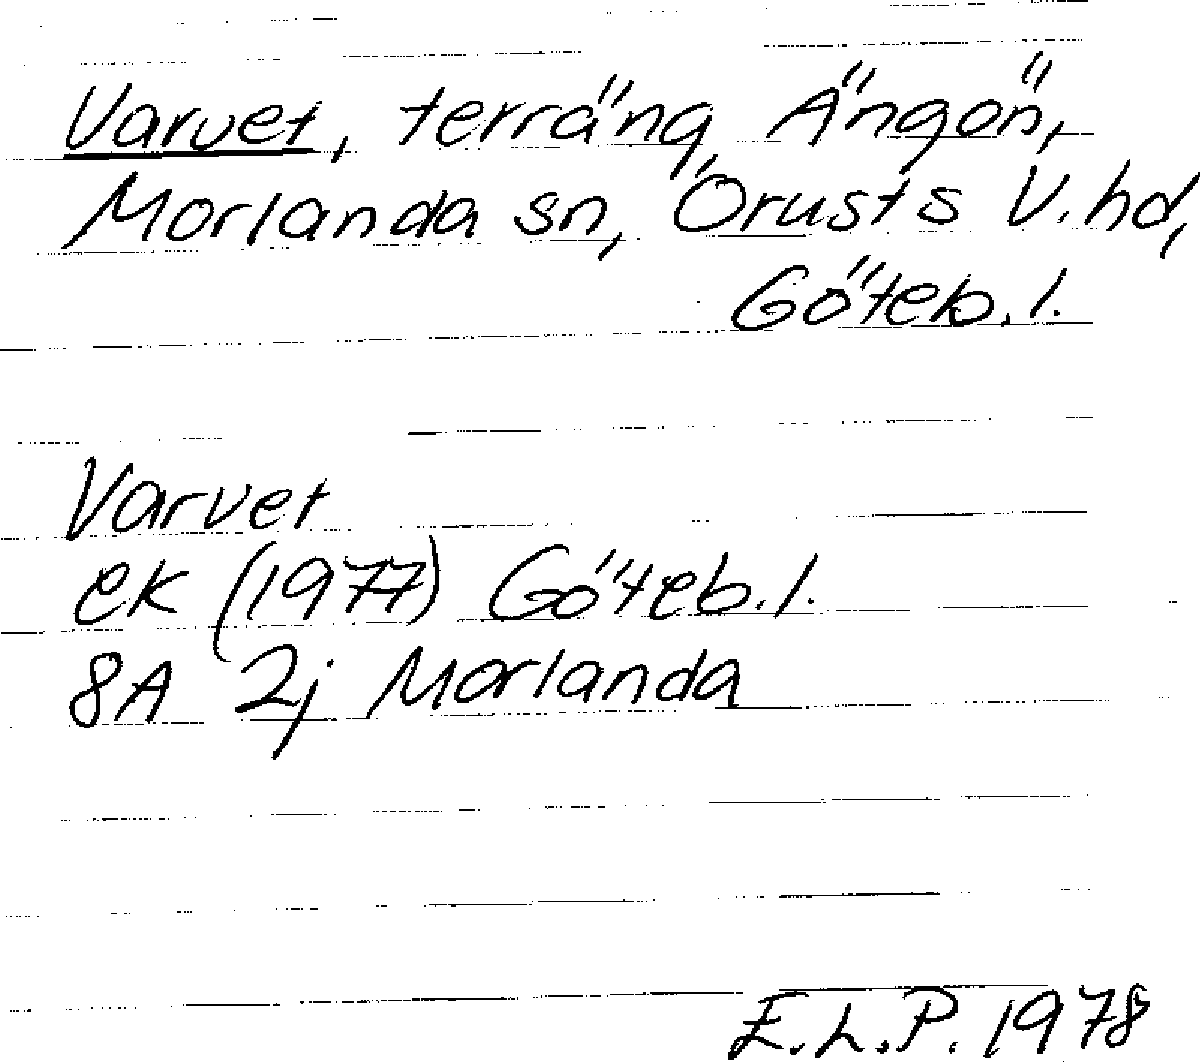 Varvet, terräng Ängön,
Morlanda sn, Orusts V. hd,
Göteb. l.
Varvet
ek (1977) Göteb. l.
8A 2j Morlanda
E.L.P. 1978